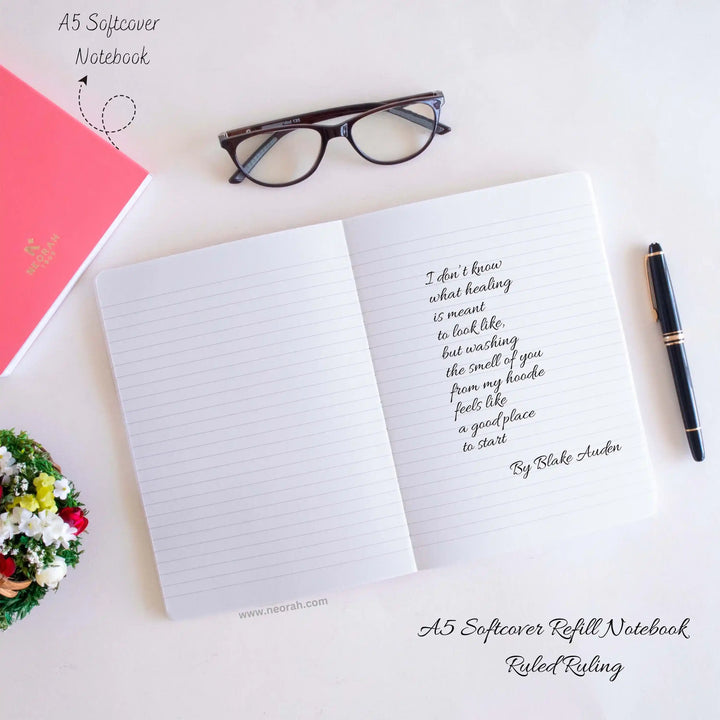 A5 Softcover
Notebook
NEORAH
1969
I don't know
what healing
is meant
to look like,
but washing
the smell of you
from my hoodie
feels like
a good place
to start
By Blake Auden
www.neorah.com
A5 Softcover Refill Notebook
Ruled Ruling